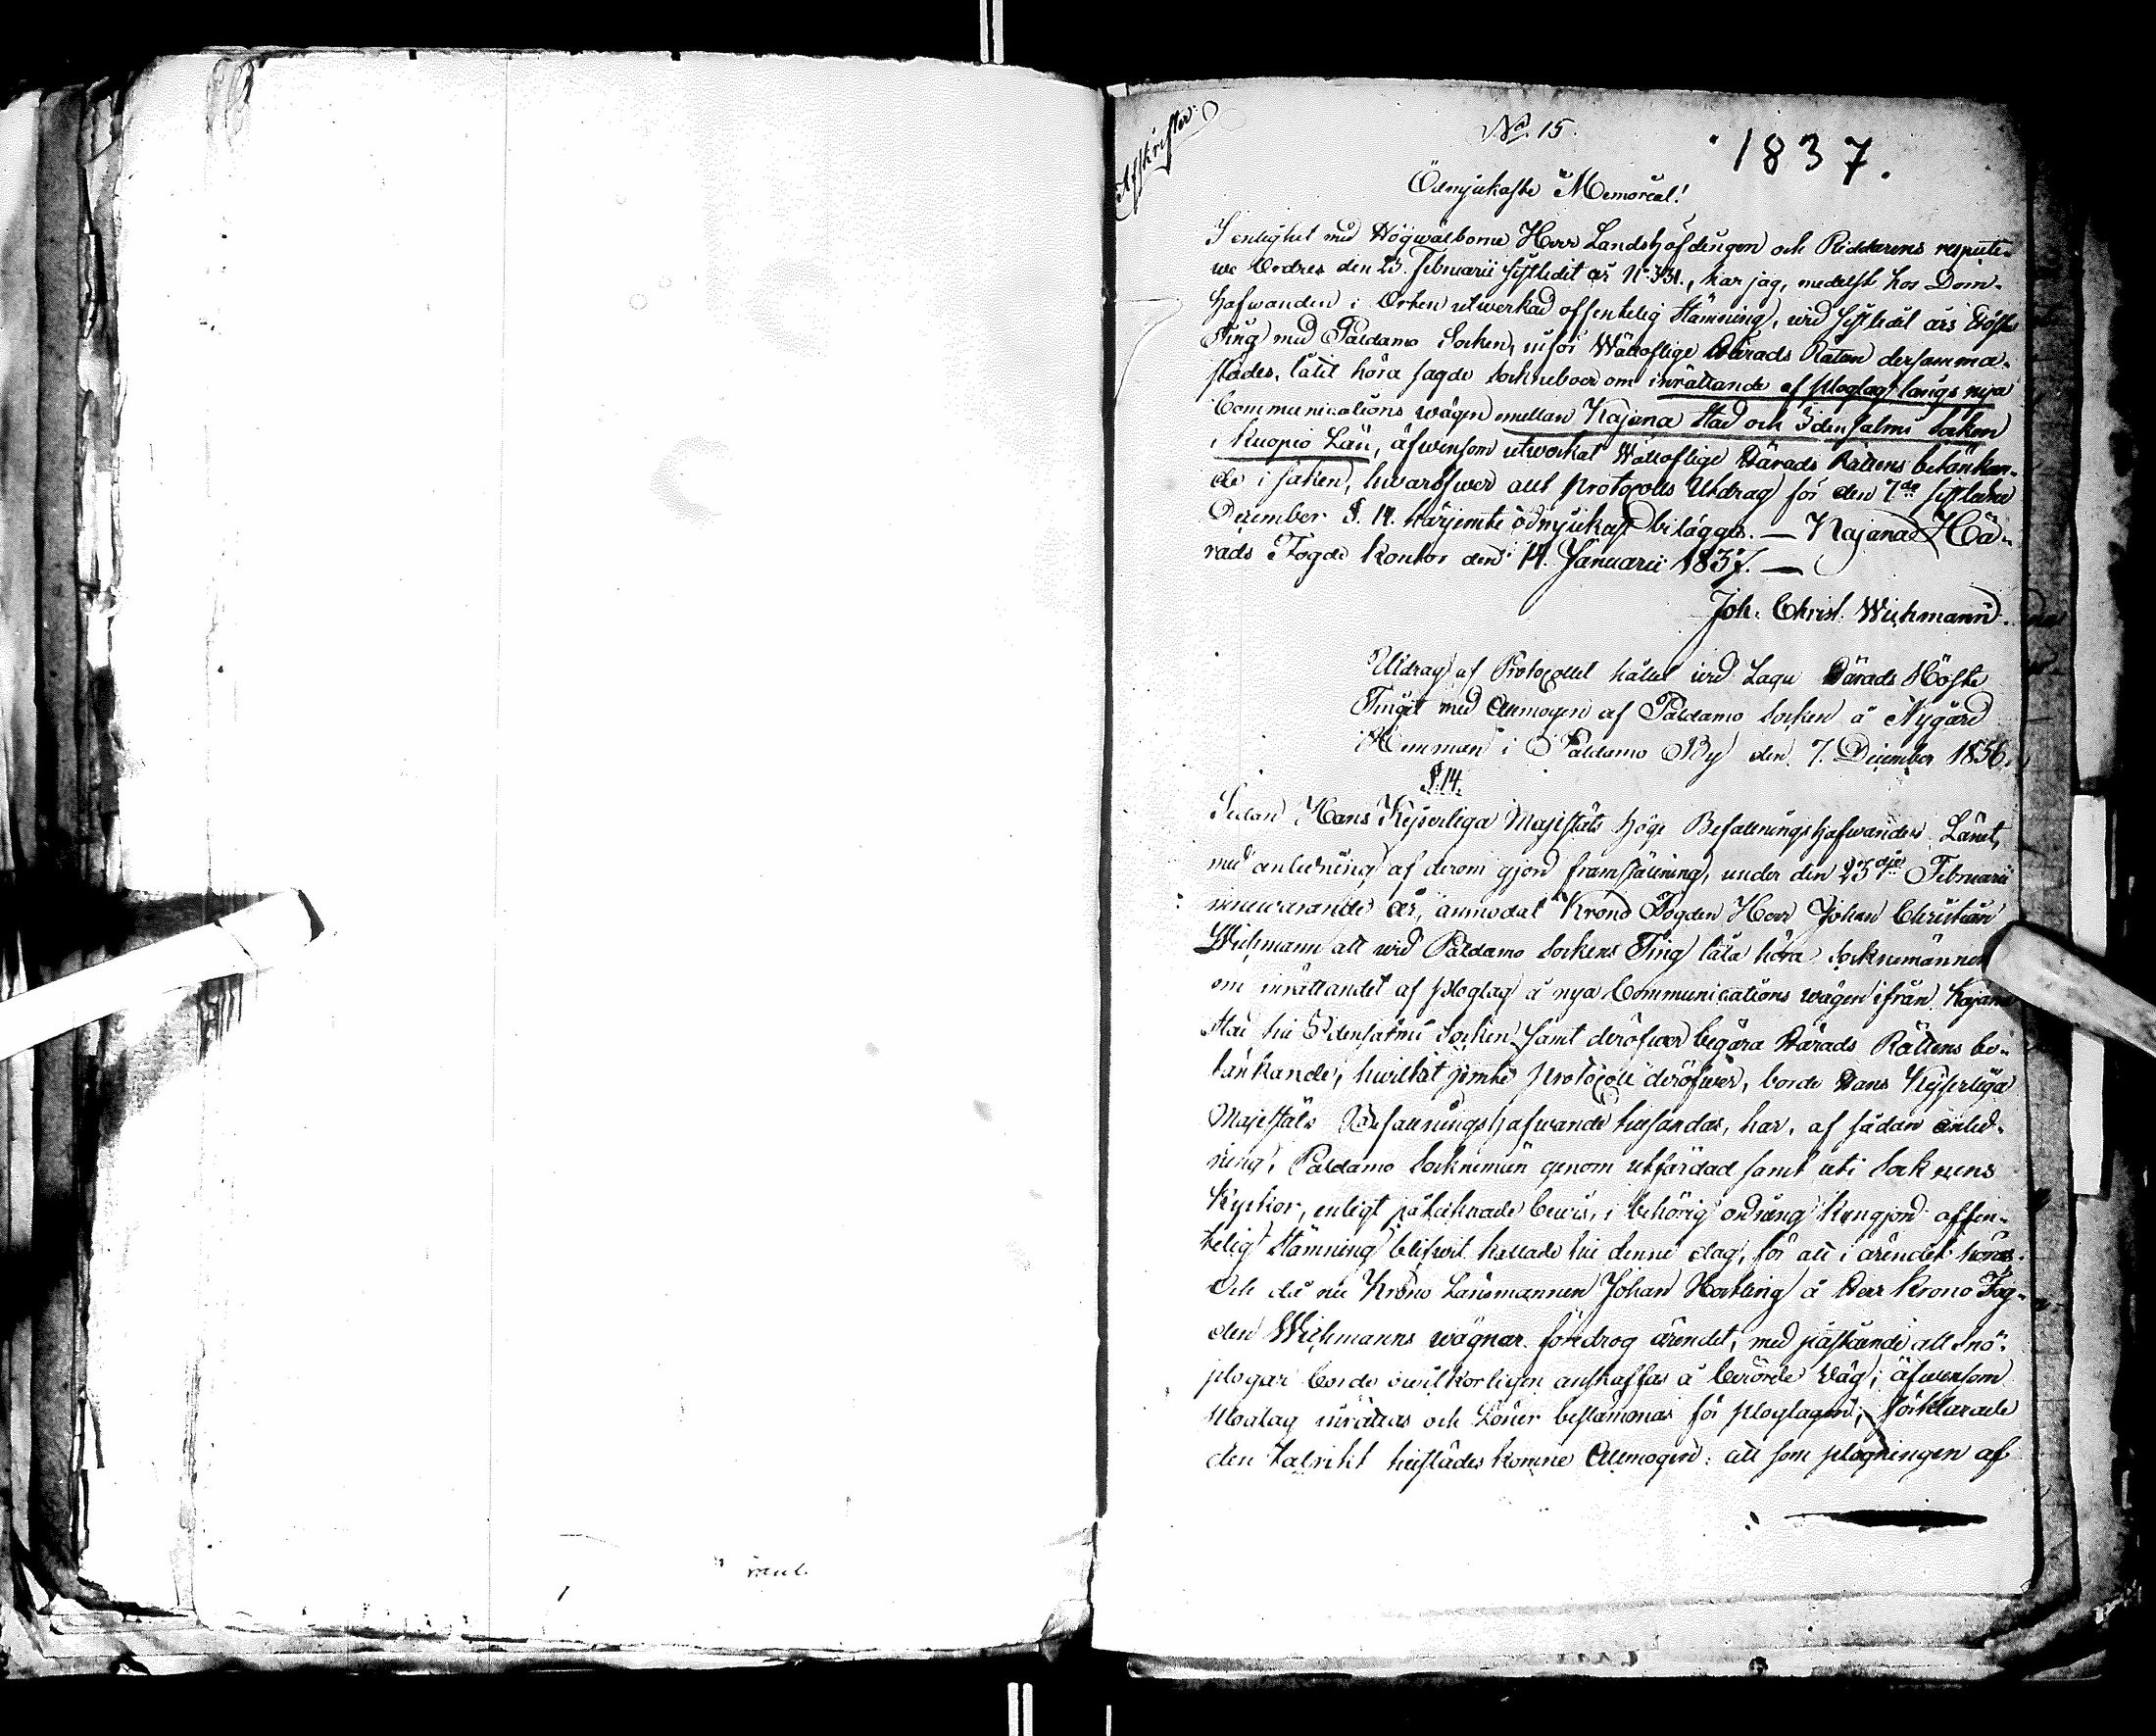 Afskrifter.
No. 15.
1837.
Ödmjukaste Memorial!
I enlighet med Högwälborne Herr Landshöfdingen och Riddarens respecti-
we Ordres den 23. Februarii sistledit år No 331., har jag, medelst hos Dom-
hafwanden i Orten utwerkad offentelig Stämning, wid sistledit års Höste
Ting med Paldamo Socken, inför Wälloflige Härads Rätten dersamma-
städes, låtit höra sagde Sockneboer om inrättande af Ploglag långs nya
Communications wägen mellan Kajana Stad och Idensalmi Socken
i Kuopio Län, äfwensom utwerkat Wälloflige Härads Rättens betänkan-
de i saken, hwaröfwer allt Protocolls Utdrag för den 7de sistledne
December §. 14. härjemte ödmjukast bilägges. — Kajana Hä-
rads Fogde Kontor den 14. Januarii 1837. —
Joh. Christ. Wichmann.
Utdrag af Protocollet hållet wid Laga Härads Höste
Tinget med Allmogen af Paldamo Socken å Nygård
Hemman i Paldamo By den 7. December 1836.
§. 14.
Sedan Hans Kejserliga Majestäts höge Befallningshafwande i Länet,
med anledning af derom gjord framställning, under den 23dje Februarii
innewarande år, anmodat Krono Fogden Herr Johan Christian
Wichmann att wid Paldamo Sockens Ting låta höra Socknemännen
om inrättandet af ploglag å nya Communications wägen ifrån Kajana
Stad till Idensalmi Socken samt deröfwer begära Härads Rättens be-
tänkande, hwilket jemte Protocoll deröfwer, borde Hans Kejserliga
Majestäts Befallningshafwande tillsändas, har, af sådan anled-
ning, Paldamo Socknemän genom utfärdad samt uti Socknens
Kyrkor, enligt påtecknade bewis, i behörig ordning kungjord offen-
telig Stämning blifwit kallade till denne dag, för att i ärendet höras.
Och då nu Krono Länsmannen Johan Hockling å Herr Krono Fog-
den Wichmanns wägnar föredrog ärendet, med påstående att Snö-
plogar borde owilkorligen anskaffas å berörde Wäg, äfwensom
Ploglag inrättas och Löner bestämmas för Ploglagen; förklarade
den talrikt tillstädes komne Allmogen: att som plogningen af